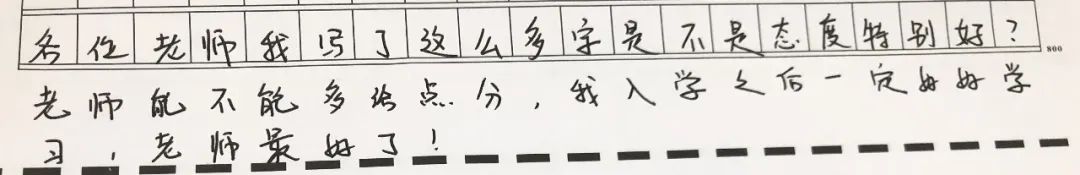 各位老师我写了这么多字是不是态度特别好？
800
老师能不能多给点分，我入学之后一定好好学
习，老师最好了！